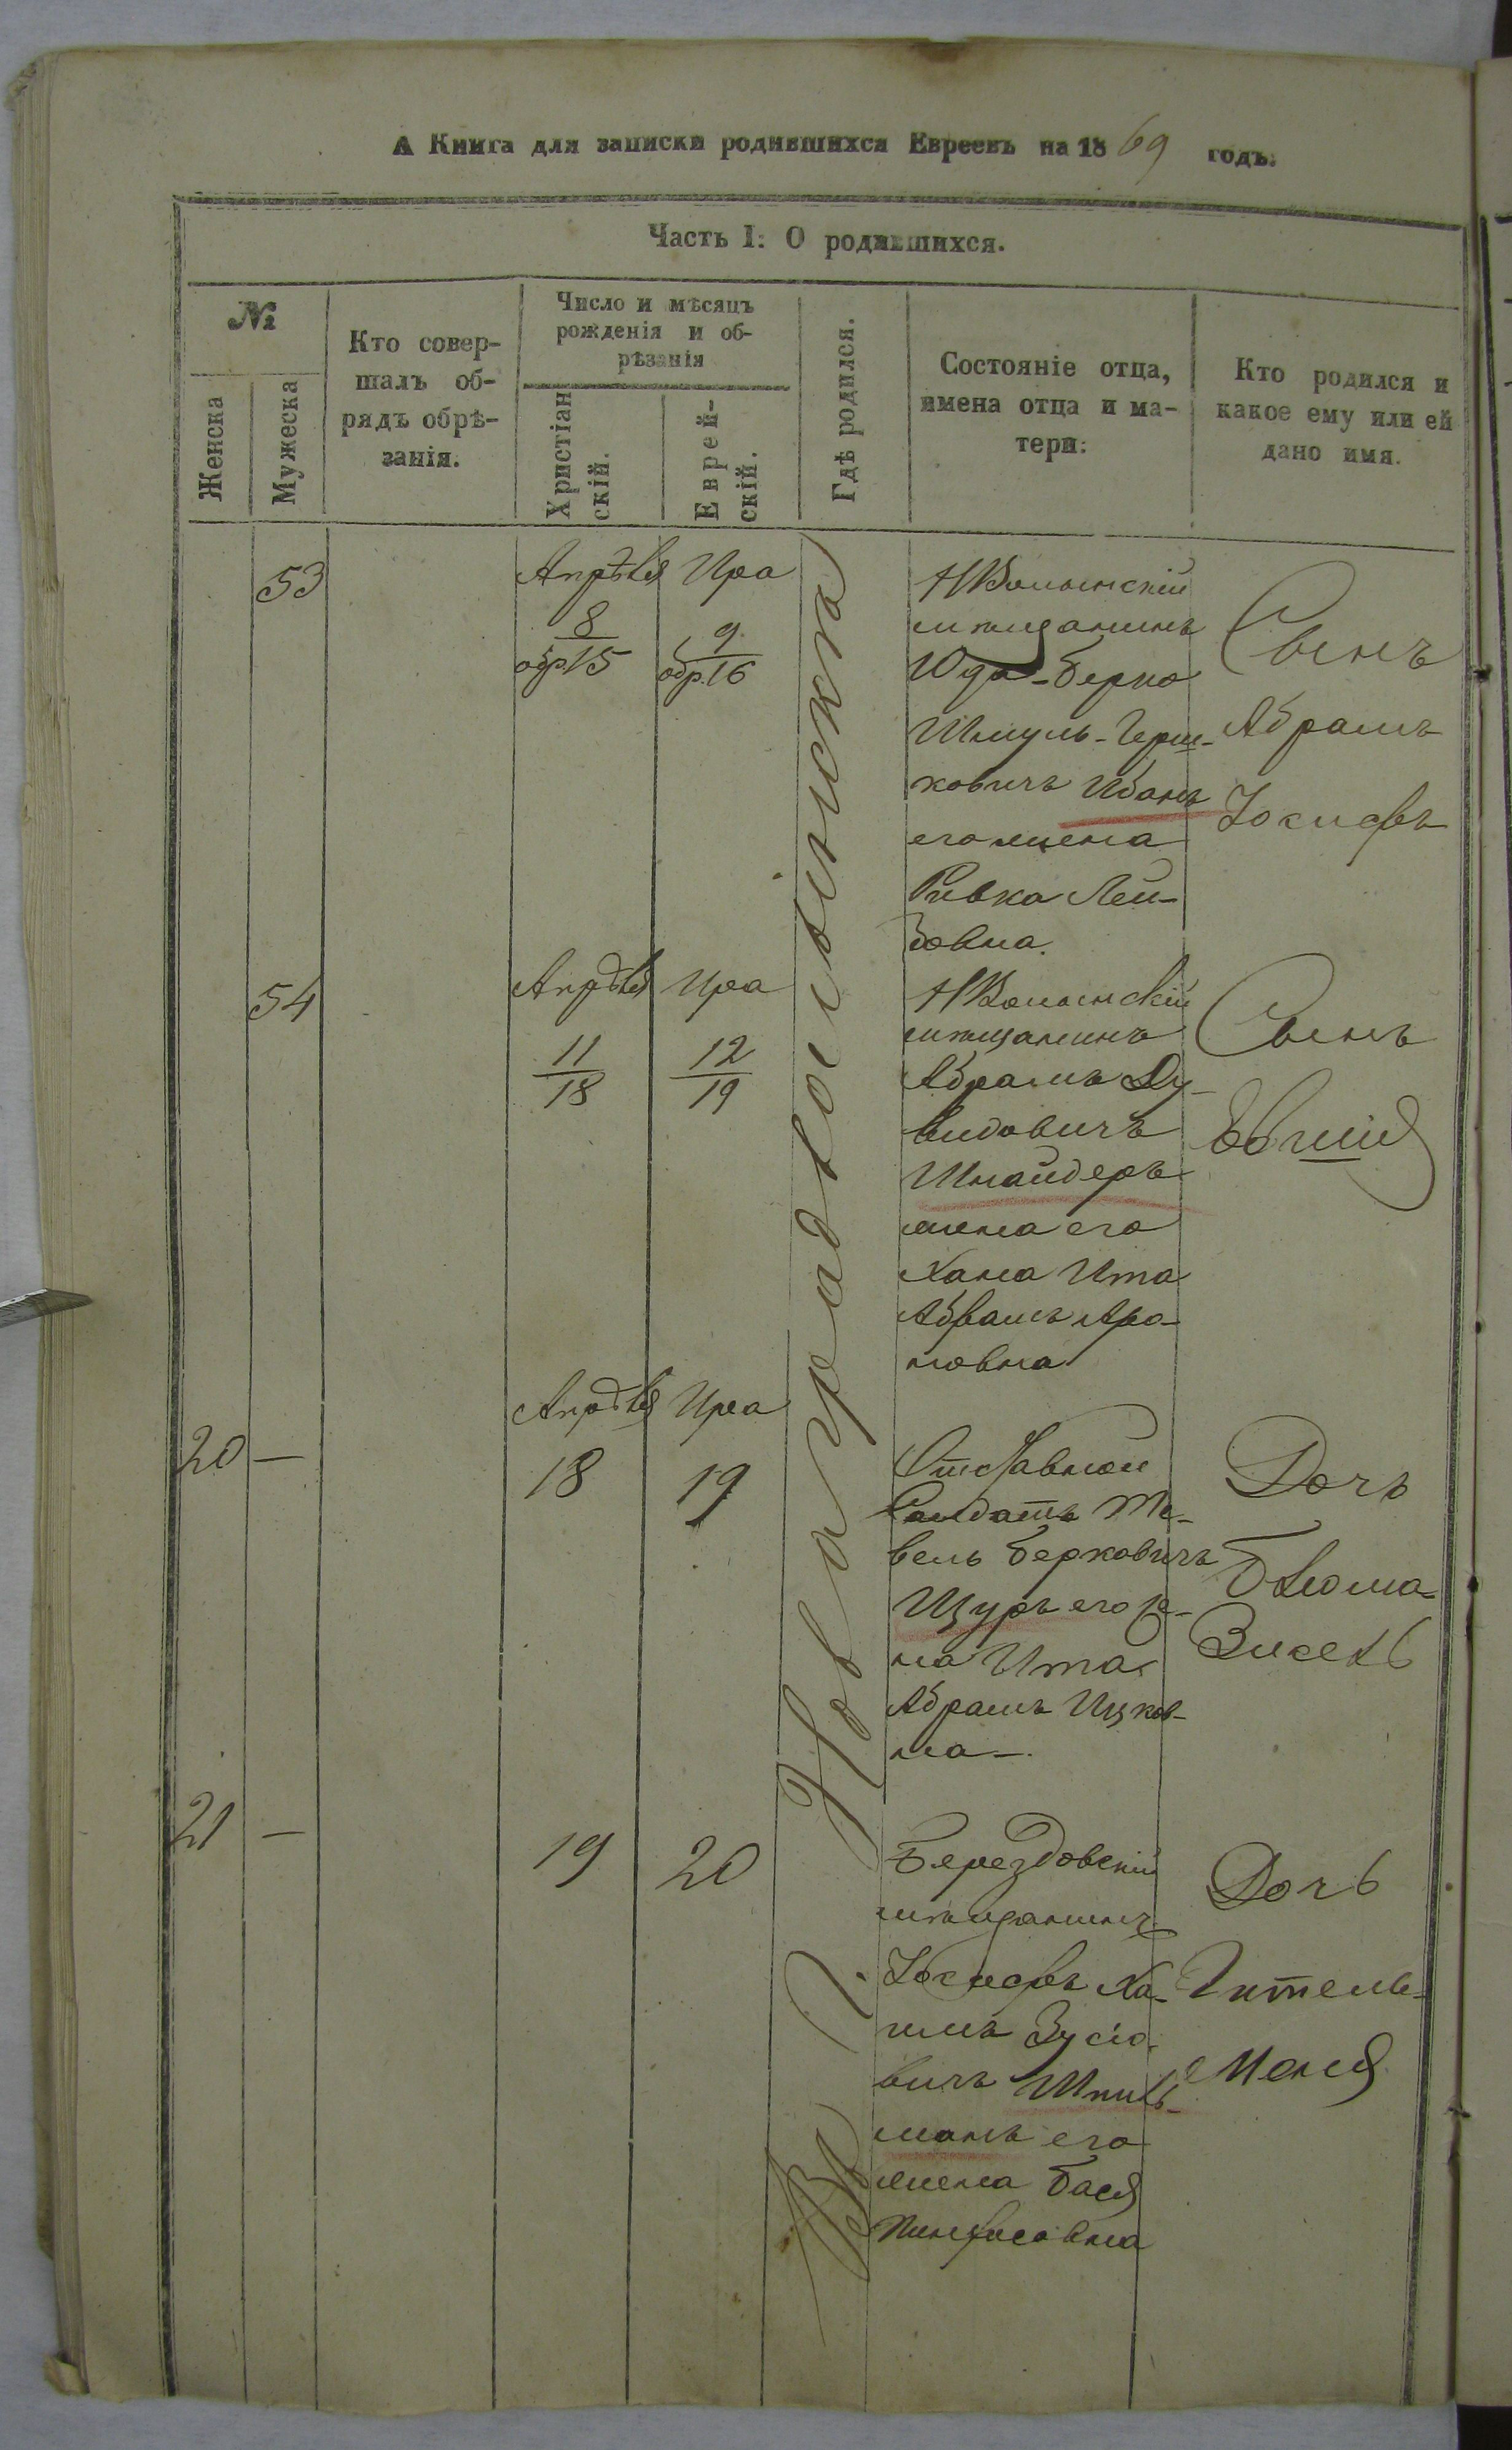 А Книга для записки родившихся Евреевъ на 1869 годъ.
Часть I: О родившихся.
№
Женска
Мужеска
Кто совер-
шалъ об-
рядъ обрѣ-
занія.
Число и мѣсяцъ
рожденія и об-
рѣзанія
Христіан
скій.
Еврей-
скій.
Гдѣ родился.
Состояніе отца,
имена отца и ма-
тери:
Кто родился и
какое ему или ей
дано имя.
Въ г. Новоградволынска
53
Апрѣля
8
обр. 15
Ира
9
обр. 16
НВолынскій
мѣщанинъ
Юда-Берко
Шмуль-Герш-
ковичъ Ибанъ
его жена
Ривка Лей-
зовна.
Сынъ
Абрамъ
Іосифъ
54
Апрѣля
11
18
Ира
12
19
НВолынскій
мѣщанинъ
Абрамъ Ду-
видовичъ
Шнайдеръ
жена его
Хана Ита
Абрамъ Аро-
новна
Сынъ
Евшія
20 —
Апрѣля
18
Ира
19
Отставной
Солдатъ Те-
вель Берковичъ
Щуръ его же-
на Ита
Абрамъ Ицков-
на —.
Дочь
Блюма-
Зисель
21 —
19
20
Берездовскій
мѣщанинъ
Іосифъ Ха-
имъ Зусіо-
вичъ Шпиль-
манъ его
жена Бася
Пинхасовна
Дочь
Гитель-
Меня